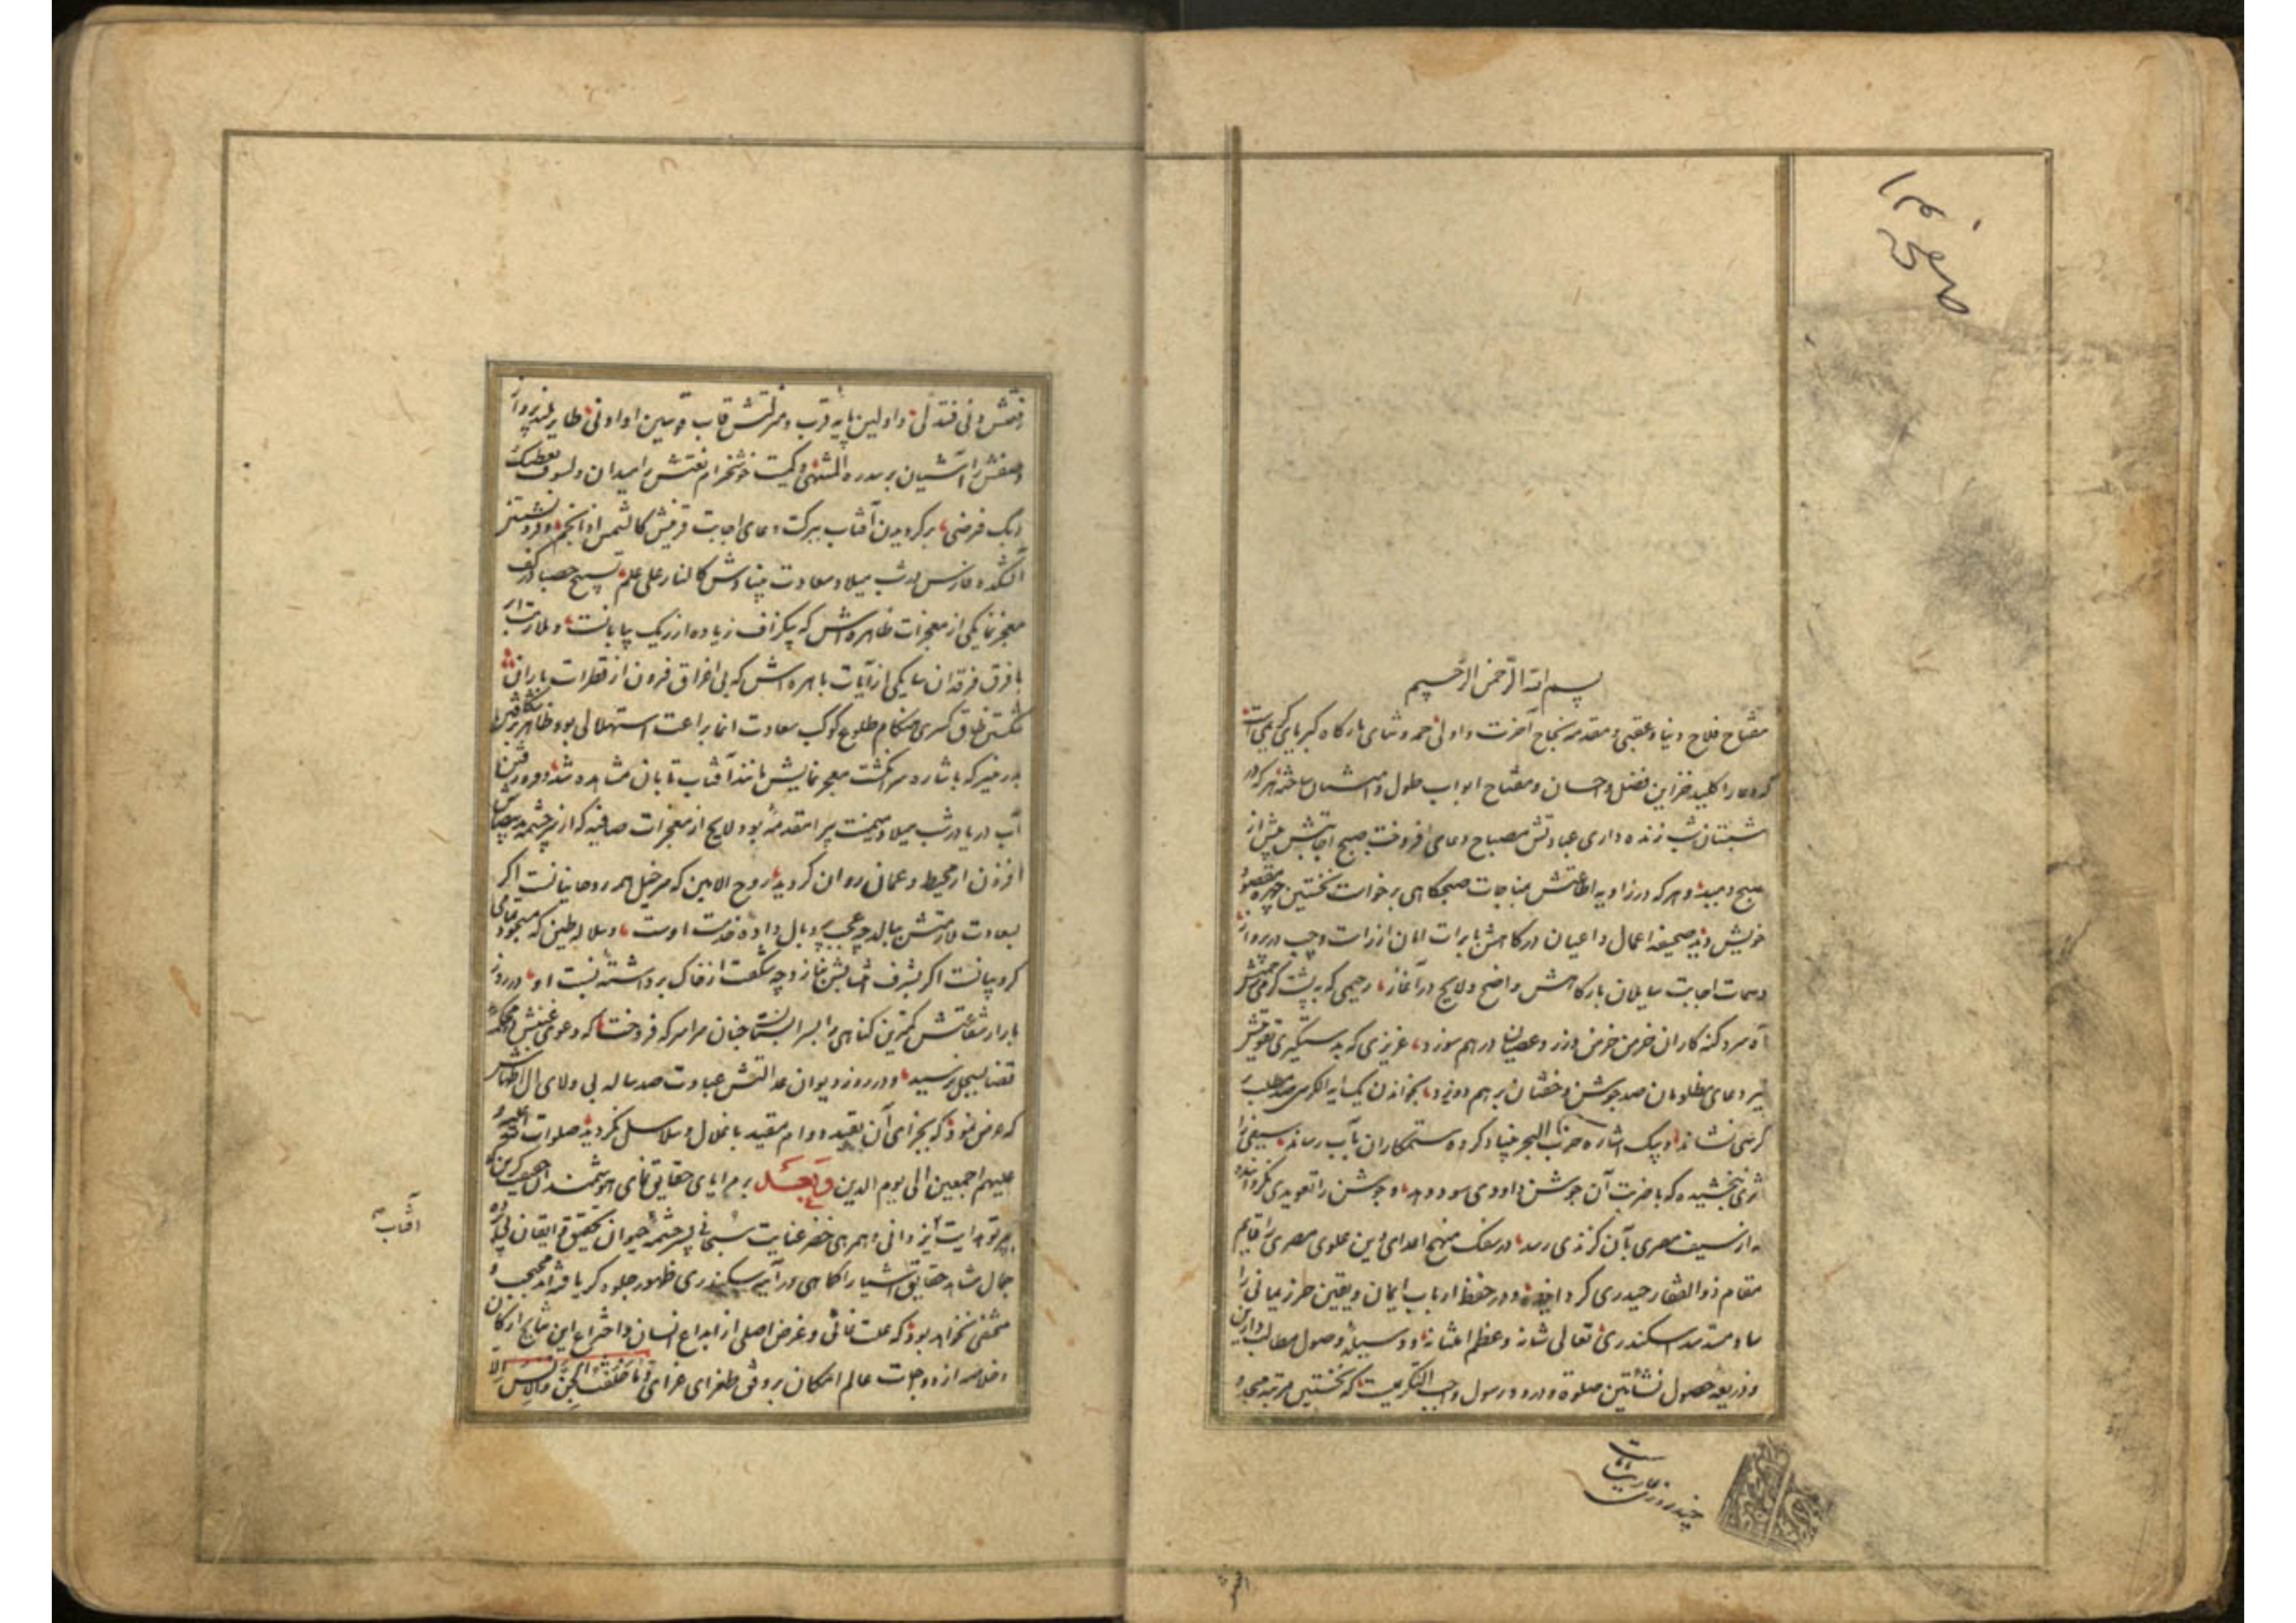 بسم الله الرحمن الرحیم
مفتاح فلاح دنیا و عقبی و مقدمه نجاح آخرت و اولی حمد و ثنای بارگاه کبریایی
که دعا را کلید خزاین فضل و احسان و مفتاح ابواب طول و امتنان ساخته هر که در
شبستان شب زنده داری عبادتش مصباح دعای افروخت صبح اجابتش پیش از
صبح دمید و هر که در زاویه اطاعتش بمناجات صبحگاهی برخواست نخستین چهره مقصود
خویش دید صحیفه اعمال داعیان درگاهش با برات امان از
و سمات اجابت سایلان بارگاهش واضح و لایح در آغاز رحیمی که به پشت گرمی
آه سرد گنه کاران خرمن خرمن وزر و عصیان در هم سوزد عزیزی که بدستگیری تقویتش
تیر دعای مظلومان صد جوشن و خفتان بر هم دوزد بخواندن یک آیة الکرسی صد مطلب بر
کرسی نشاند و بیک اشاره حزب البحر بنیاد کرده ستمکاران بآب رساند سیفی را
اثری بخشیده که با ضربت آن جوشن داودی سود ندهد و جوشن را تعویذی گردانیده
که از سیف مصری بآن گزندی رسد در سفک مهج اعدای دین علوی مصری را قایم
مقام ذوالفقار حیدری کرد و در حفظ ارباب ایمان و یقین حرز یمانی را
ساد مسد سد اسکندری تعالی شانه و عظم امتنانه و وسیله وصول مطالب دارین
و ذریعه حصول نشأتین صلوة و درود رسول واجب التکریمیست که نخستین مرتبه مجد و
چند روزی عاریت ماست
صفحه ۱۲
رفعتش دنی فتدلی و اولین پایه قرب و منزلتش قاب قوسین او ادنی طایر بلند پرواز
وصفش را آشیان بر سدرة المنتهی و کمیت خوشخرام نعتش را میدان و لسوف یعطیک
ربک فترضی برگردیدن آفتاب ببرکت دعای اجابت قرینش کالشمس اذا انجم و فرو نشستن
آتشکده فارس در شب میلاد سعادت بنیادش کالنار علی علم تسبیح حصبا در کف
معجز نما یکی از معجزات ظاهره اش که بیگزاف زیاده از ریگ بیابانست و
با فرق فرقدان سا یکی از آیات باهره اش که بی اغراق فزون از قطرات باران
شکستن طاق کسری هنگام طلوع کوکب سعادت انما براعت استهلالی بود
بدر منیر که باشاره سر انگشت معجز نمایش مانند آفتاب تابان مشاهده شد و فرو رفتن
آب دریا در شب میلاد میمنت پیرا مقدمه بود لایح از معجزات صافیه که از سرچشمه
افزون از محیط و عمان روان گردید روح الامین که سرخیل همه روحانیانست اگر
بسعادت ملازمتش ببالد چه عجب پر و بال داده خدمت اوست و سلاله طین که مسجود تمامی
کروبیانست اگر بشرف انتسابش نازد چه شگفت از خاک برداشته نسبت او در روز
بازار شفاعتش کمترین گناهی را بسرابستان جنان سراسر که فروخت که دعوی غبنش بمحکمه
قضا بسجل نرسید و در روز دیوان عدالتش عبادت صد ساله بی ولای آل اطهارش
که عرض نمود که بجزای آن بقید دوام مقید باغلال و سلاسل نگردید صلوات الله علیه و
علیهم اجمعین الی یوم الدین وبعد بر مرایای حقایق نمای هوشمندان
بپرتو هدایت ایزدانی و همرهی خضر عنایت سبحانی بسرچشمه حیوان تحقیق و ایقان پی برده
جمال شاهد حقایق اشیا را کاهی در آینه سکندری ظهور جلوه گر یافته اند محجوب و
مختفی نخواهد بود که علت غائی و غرض اصلی از ابداع انسان و اختراع این نتایج ارکان
و خلاصه ازدواجات عالم امکان بر وفق طغرای غرای و ما خلقت الجن والانس الا
آفتاب